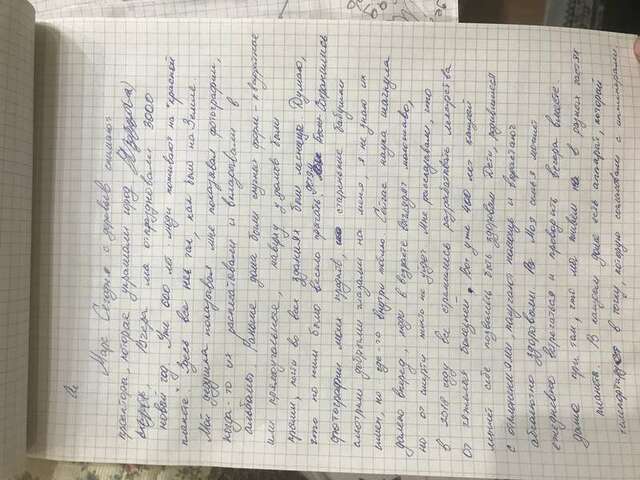 Марс Сегодня с деревьев снимают
проекторы, которые украшали город
Вчера мы отпраздновали 3000
новый год. Уже 600 лет люди поживают на "красной
планете". Здесь все не так, как было на Земле.
Мой дедушка показывал мне показывал фотографии,
когда-то их распечатывали и вкладывали в
альбомы. Раньше дома были скучных форм - квадратные
или прямоугольные, наверху у домов были
крыши, почти во всех зданиях были лестницы Думаю,
что по ним было весело прыгать детям Сохранились
фотографии моих предков, старенькие бабушки
смотрят добрыми глазами на меня, я не знаю их
имен, но где-то внутри люблю. Сейчас наука шагнула
далеко вперед, люди в возрасте выглядят моложаво,
но от смерти никто не уйдет Мне рассказывали, что
в 2018 году все стремились разрабатывать лекарства
от тяжелых болезней. Вот уже 400 лет каждый
может себе позволить быть здоровым Дети, родившиеся
с отклонениями, получают помощь и вырастают
абсолютно здоровыми. Моя семья может
ежедневно встречаться и проводить вечера вместе
даже при том, что мы живем в разных частях
планеты. В каждом доме есть аппарат, который
телепортирует в точку, которую согласовали с